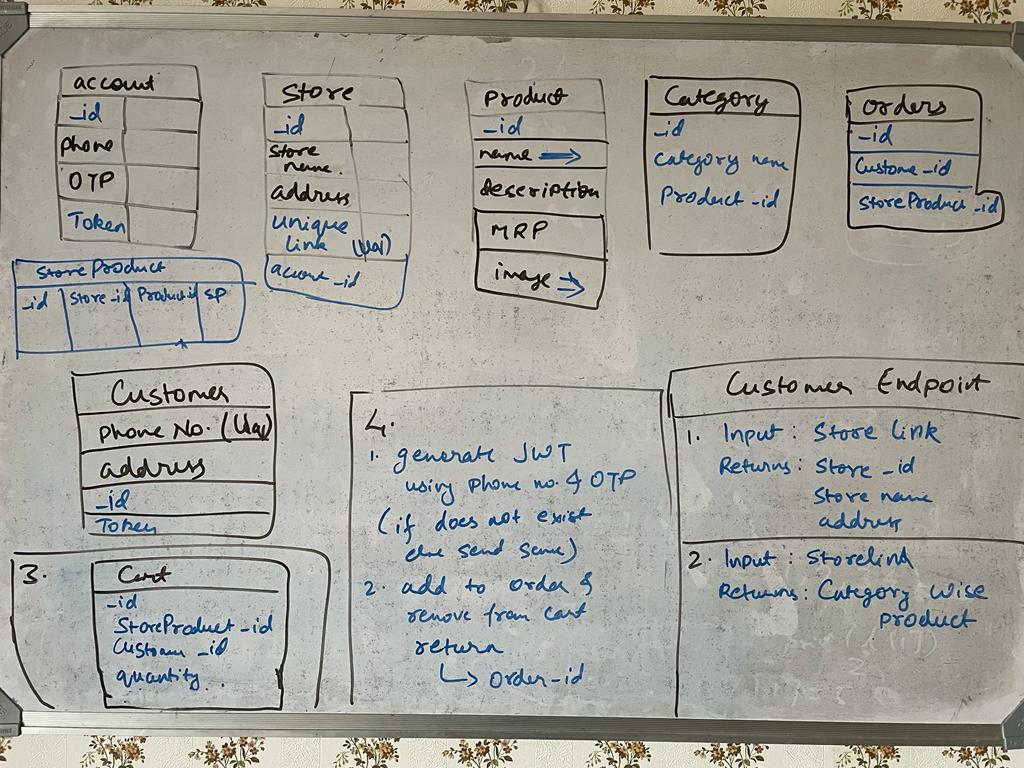 account
_id
phone
OTP
Token
Store
_id
Store
name.
address
unique
link
account_id
Product
_id
name →
description
MRP
image →
Category
_id
category name
Product_id
orders
_id
Custome_id
StoreProduct_id
StoreProduct
_id Store_id Product_id SP
Customer
Phone No.
address
_id
Token
3.
Cart
_id
StoreProduct_id
Customer_id
quantity
4.
1. generate JWT
using phone no. & OTP
(if does not exist
else send same)
2. add to order &
remove from cart
return
↳ order-id
Customer Endpoint
1. Input : Store link
Returns : Store_id
Store name
address
2. Input : Storelink
Returns : Category wise
product